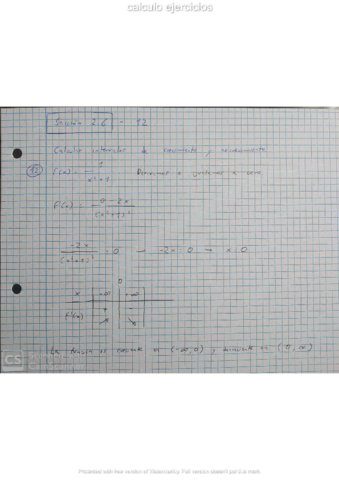 calculo ejercicios
Sección 2.6 - 12
Calcular intervalos de crecimiento y decrecimiento
12 f(x) = 1 / (x²+1) Derivamos e igualamos a cero
f'(x) = (0 - 2x) / (x²+1)²
-2x / (x²+1)² = 0 → -2x = 0 → x = 0
0
x | -∞ | +∞
f'(x) | + | -
↗ ↘
La función es creciente en (-∞, 0) y decreciente en (0, ∞)
CS
Presented with free version of Watermarkly. Full version doesn't put this mark.